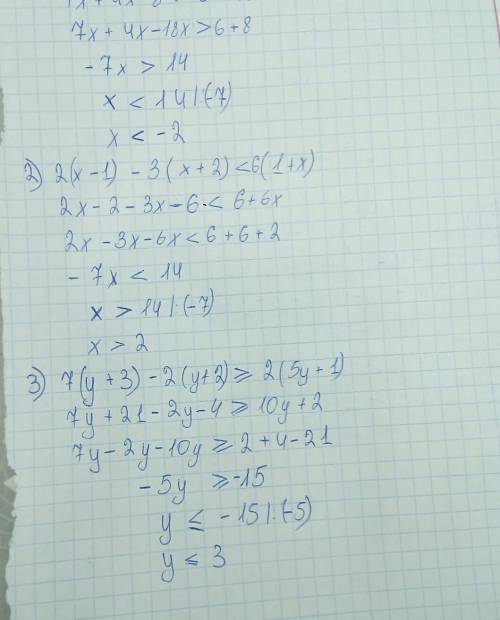 7x + 4x - 18x > 6 + 8
- 7x > 14
x < 14 |:(-7)
x < -2
2) 2(x - 1) - 3(x + 2) < 6(1 + x)
2x - 2 - 3x - 6 < 6 + 6x
2x - 3x - 6x < 6 + 6 + 2
- 7x < 14
x > 14 |:(-7)
x > 2
3) 7(y + 3) - 2(y + 2) ≥ 2(5y + 1)
7y + 21 - 2y - 4 ≥ 10y + 2
7y - 2y - 10y ≥ 2 + 4 - 21
- 5y ≥ -15
y ≤ -15 |:(-5)
y ≤ 3